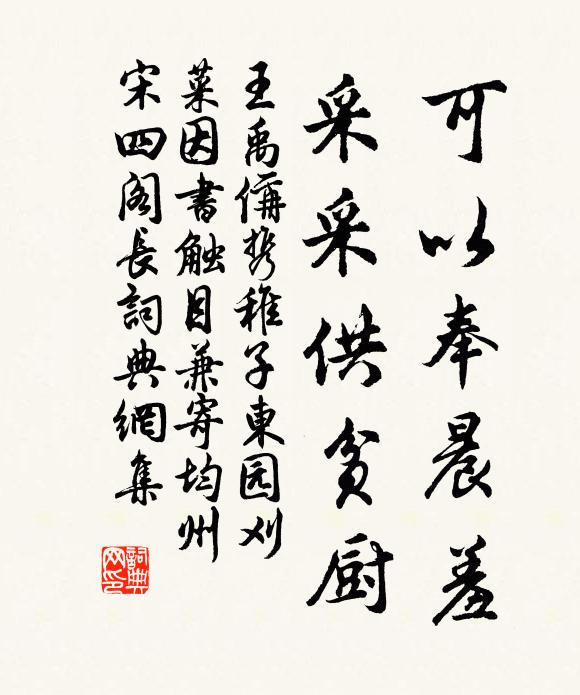 可以奉晨羞
采采供贫厨
王禹偁携稚子東园刈
菜因書触目兼寄均州
宋四阁長詞典網集
詞典网印